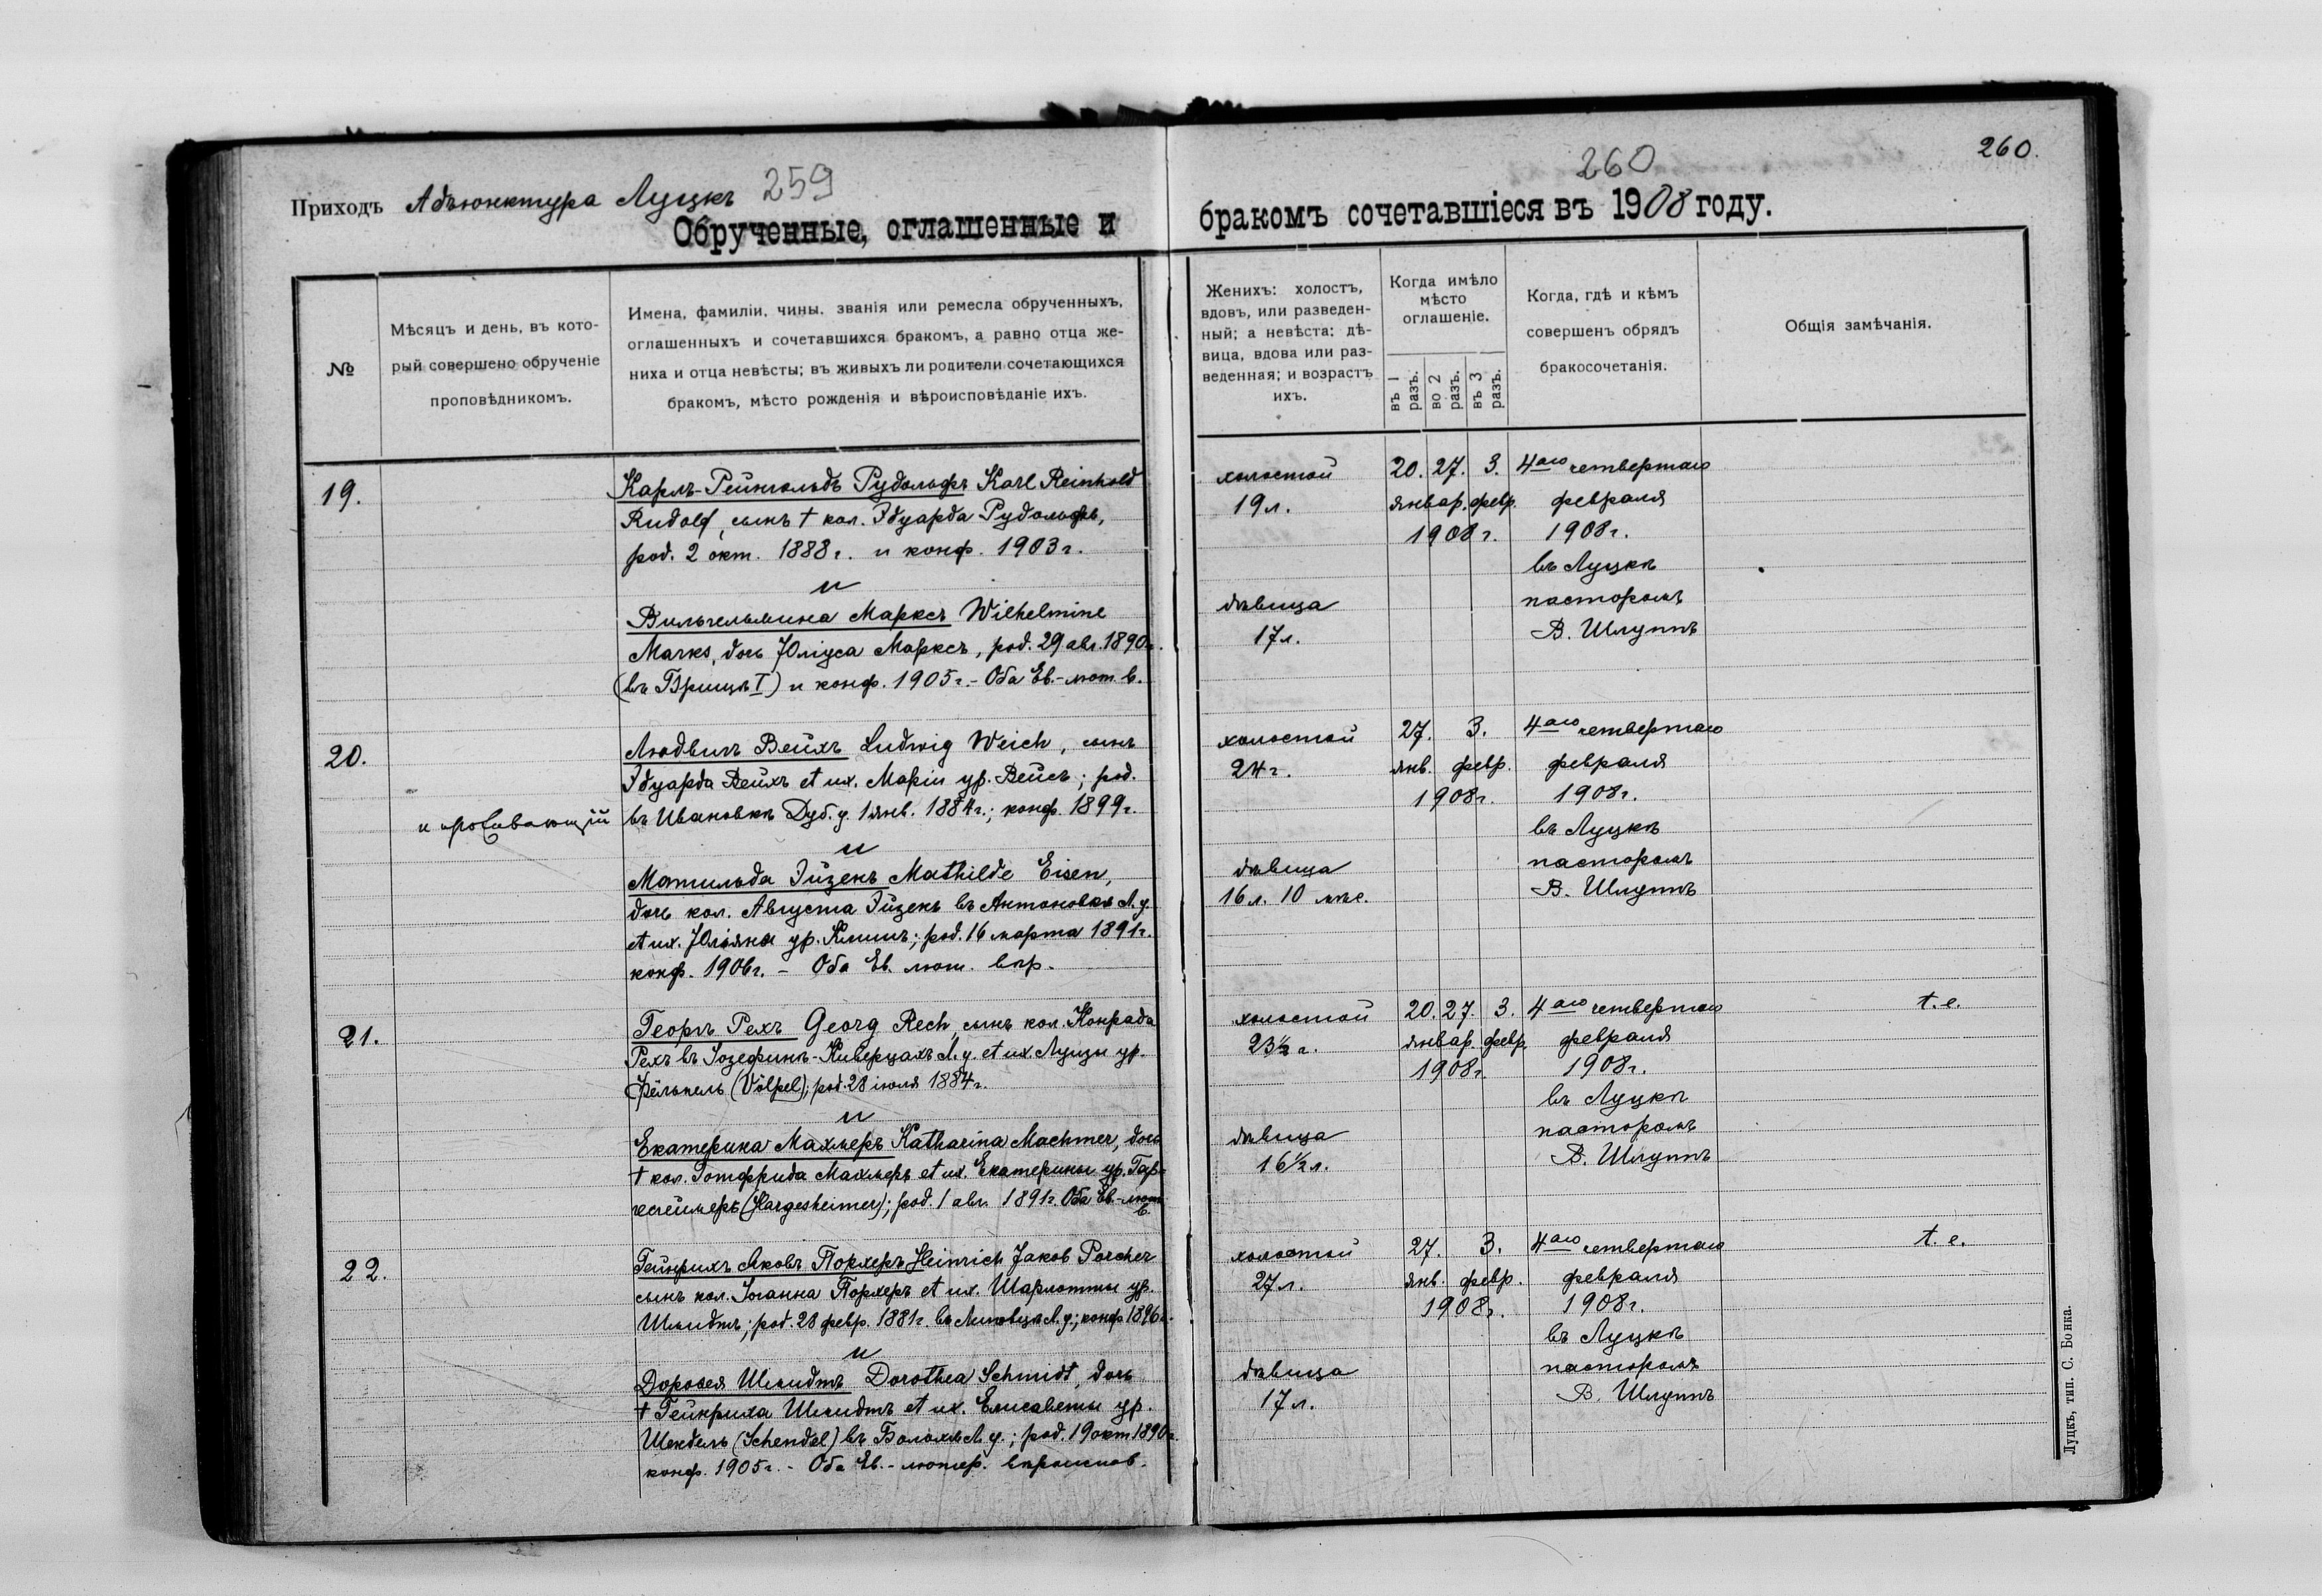 Приходъ Адъюнктура Луцкъ 259
Обрученные, оглашенные и
№
Мѣсяцъ и день, въ кото-
рый совершено обрученіе
проповѣдникомъ.
Имена, фамиліи, чины, званія или ремесла обрученныхъ,
оглашенныхъ и сочетавшихся бракомъ, а равно отца же-
ниха и отца невѣсты; въ живыхъ ли родители сочетающихся
бракомъ, мѣсто рожденія и вѣроисповѣданіе ихъ.
19.
Карлъ-Рейнгольдъ Рудольфъ Karl Reinhold
Rudolf, сынъ † кол. Эдуарда Рудольфъ,
род. 2 окт. 1888 г. и конф. 1903 г.
и
Вильгельмина Марксъ Wilhelmine
Marks, дочь Юліуса Марксъ, род. 29 авг. 1890 г.
и конф. 1905 г. - Оба Ев.-лют. в.
20.
Людвигъ Вейхъ Ludwig Weich, сынъ
Эдуарда Вейхъ et ux. Маріи ур. Вейсъ; род.
въ Ивановкѣ Дуб. у. 1 янв. 1884 г.; конф. 1899 г.
и
Матильда Эйзенъ Mathilde Eisen,
дочь кол. Августа Эйзенъ въ Антоновкѣ Л. у.
et ux. род. 16 марта 1891 г.
конф. 1906 г. - Оба Ев. лют. вѣр.
21.
Георгъ Рехъ Georg Rech, сынъ кол. Конрада
Рехъ въ Іозефинѣ-Киверцахъ Л. у. et ux. Луизы ур.
Фёльпель (Völpel); род. 28 іюля 1884 г.
и
Екатерина Махмеръ Katharina Machmer, дочь
† кол. Готфрида Махмеръ et ux. Екатерины ур. Гар-
гесгеймеръ (Hargesheimer); род. 1 авг. 1891 г. Оба Ев.-лют.
в.
22.
Гейнрихъ Яковъ Порхеръ Heinrich Jakob Porcher
сынъ кол. Іоганна Порхеръ et ux. Шарлотты ур.
Шмидтъ; род. 28 февр. 1881 г. Л. у.; конф. 1896 г.
и
Доротея Шмидтъ Dorothea Schmidt, дочь
† Гейнриха Шмидтъ et ux. Елисаветы ур.
Шендель (Schendel) Л. у.; род. 19 окт. 1890 г.
конф. 1905 г. - Оба Ев.-лютер. вѣроиспов.
260
260.
бракомъ сочетавшіеся въ 1908 году.
Женихъ: холостъ,
вдовъ, или разведен-
ный; а невѣста: дѣ-
вица, вдова или раз-
веденная; и возрастъ
ихъ.
Когда имѣло
мѣсто
оглашеніе.
въ 1 разъ.
во 2 разъ.
въ 3 разъ.
Когда, гдѣ и кѣмъ
совершенъ обрядъ
бракосочетанія.
Общія замѣчанія.
холостой 20. 27. 3. 4аго четвертаго
19 л. январ. февр. февраля
1908 г. 1908 г.
въ Луцкѣ
дѣвица пасторомъ
17 л. В. Шлуппъ
холостой 27. 3. 4аго четвертаго
24 г. янв. февр. февраля
1908 г. 1908 г.
въ Луцкѣ
дѣвица пасторомъ
16 л. 10 мѣс. В. Шлуппъ
холостой 20. 27. 3. 4аго четвертаго t. e.
23½ г. январ. февр. февраля
1908 г. 1908 г.
въ Луцкѣ
дѣвица пасторомъ
16½ л. В. Шлуппъ
холостой 27. 3. 4аго четвертаго t. e.
27 л. янв. февр. февраля
1908 г. 1908 г.
въ Луцкѣ
дѣвица пасторомъ
17 л. В. Шлуппъ
Луцкъ, тип. С. Бонка.